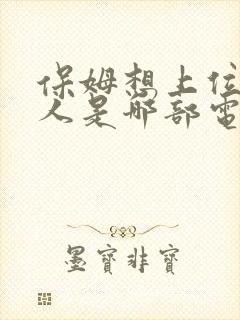 保姆想上位
人是哪部電
墨寶非寶